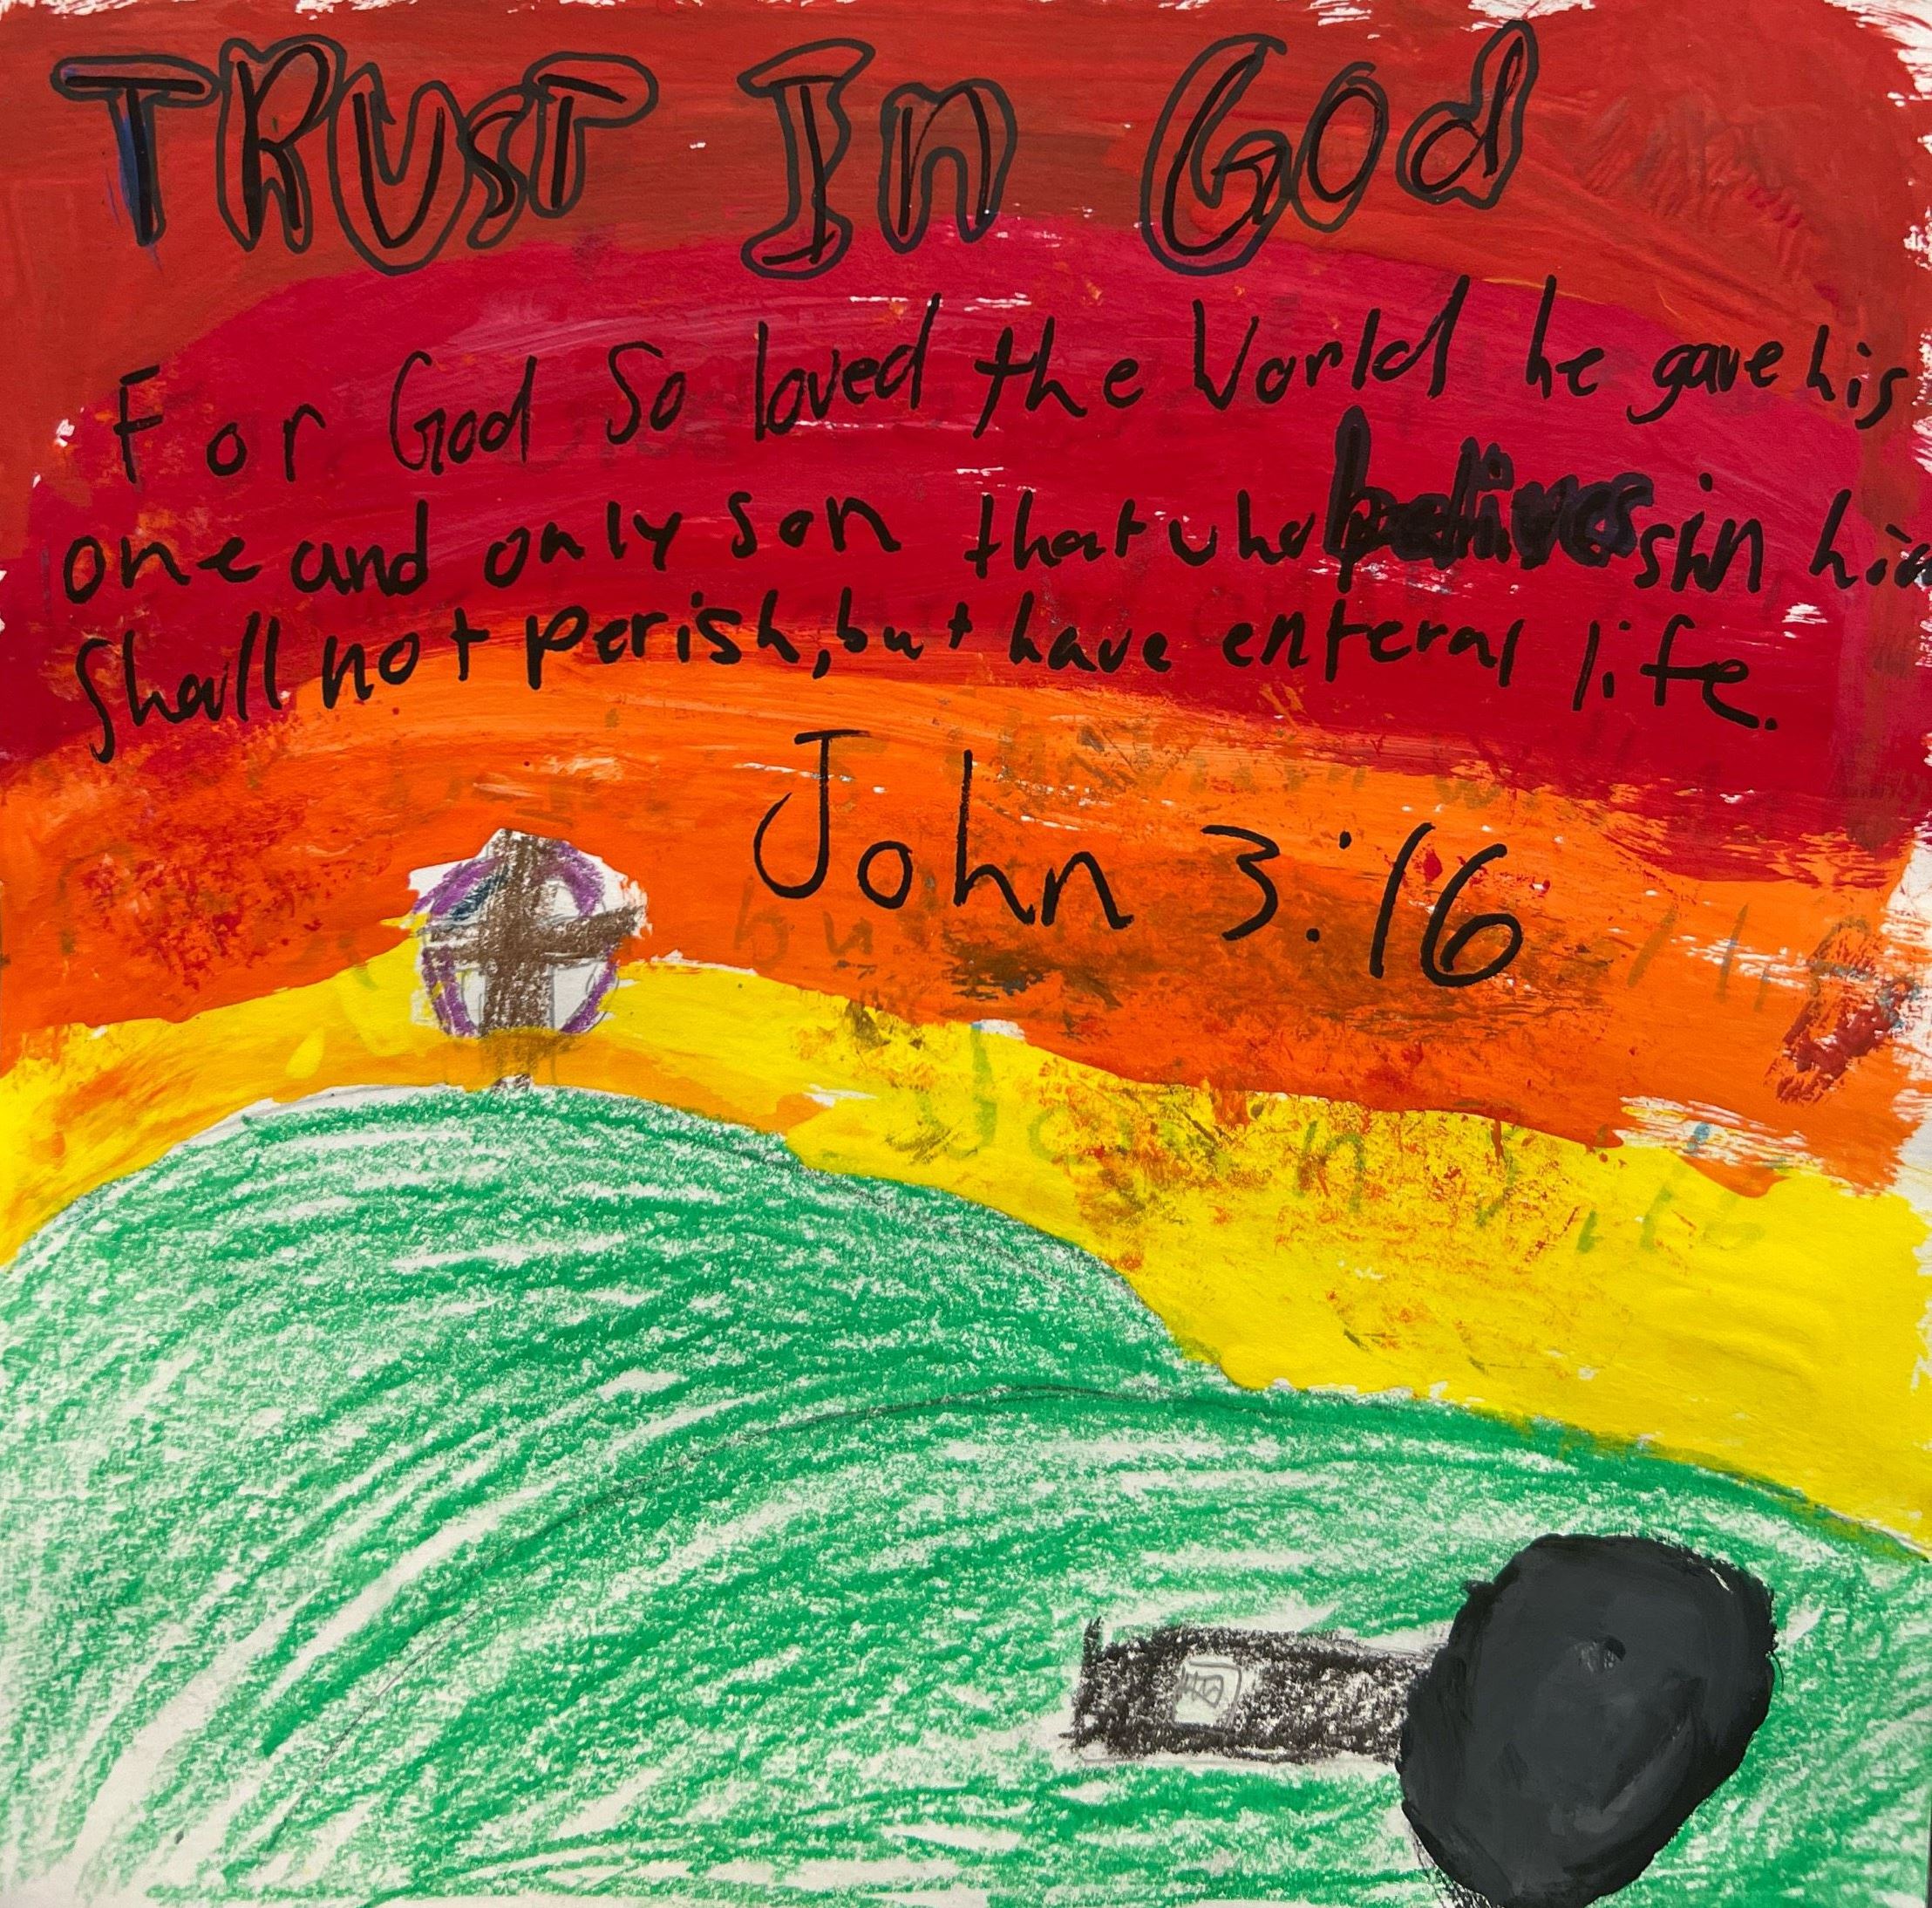 TRUST In God
For God So loved the World he gave his
one and only son that who belives in him
Shall not perish, but have enteral life.
John 3:16